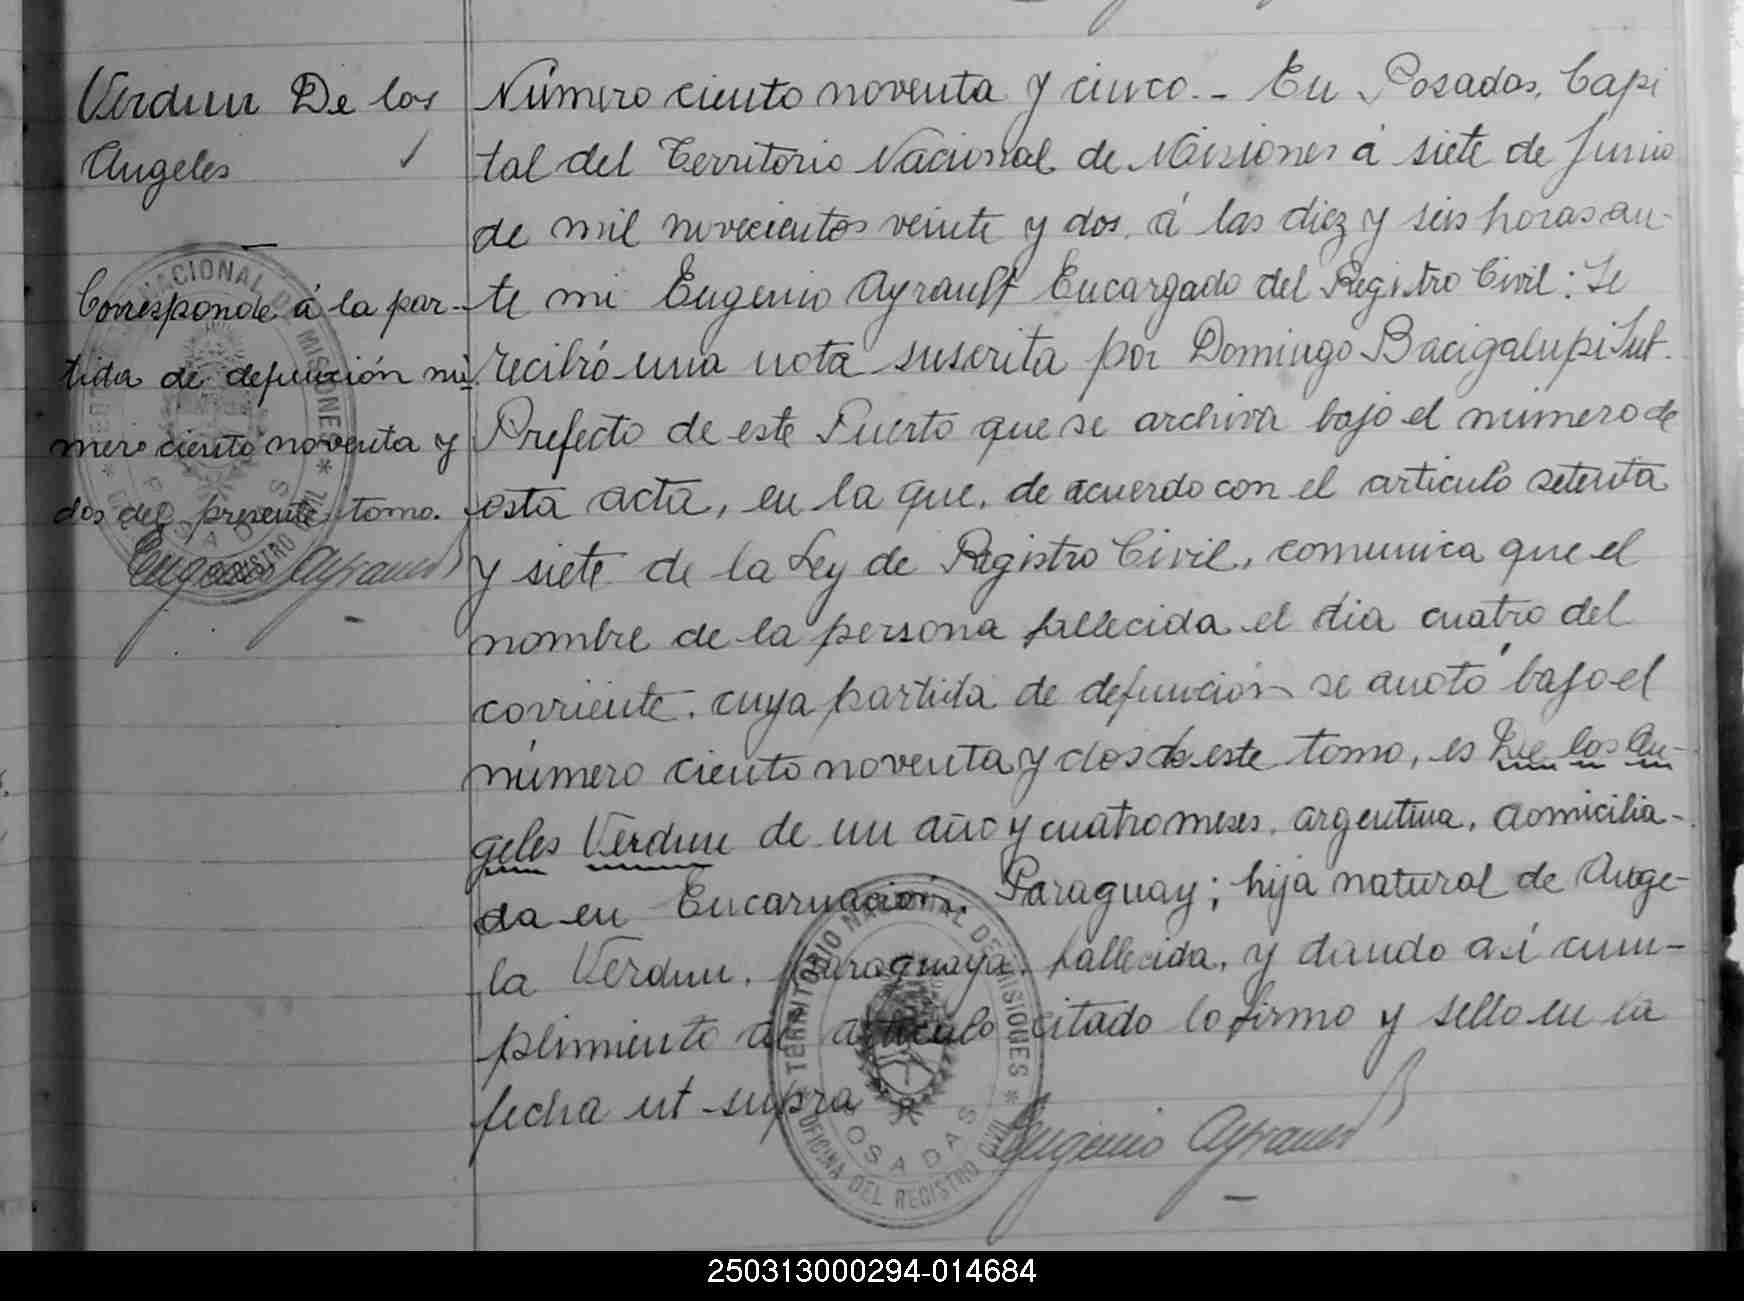 Verdun De los
Angeles
Corresponde á la par-
tida de defunción nú
mero ciento noventa y
dos del presente tomo.
Eugenio Ayrault
Número ciento noventa y cinco.- En Posadas, Capi
tal del Territorio Nacional de Misiones á siete de Junio
de mil novecientos veinte y dos, á las diez y seis horas an-
te mi Eugenio Ayrault Encargado del Registro Civil: Se
recibró una nota suscrita por Domingo Bacigalupi Sut.
Prefecto de este Puerto que se archiva bajo el número de
esta acta, en la que, de acuerdo con el articulo setenta
y siete de la Ley de Registro Civil, comunica que el
nombre de la persona fallecida el dia cuatro del
corriente, cuya partida de defuncion se anotó bajo el
número ciento noventa y dos de este tomo, es De los An-
geles Verdun de un año y cuatro meses, argentina, domicilia-
da en Encarnación, Paraguay; hija natural de Ange-
la Verdun, paraguaya, fallecida, y dando así cum-
plimiento al articulo citado lo firmo y sello en la
fecha ut-supra
Eugenio Ayrault
TERRITORIO NACIONAL DE MISIONES
POSADAS
* OFICINA DEL REGISTRO CIVIL *
250313000294-014684